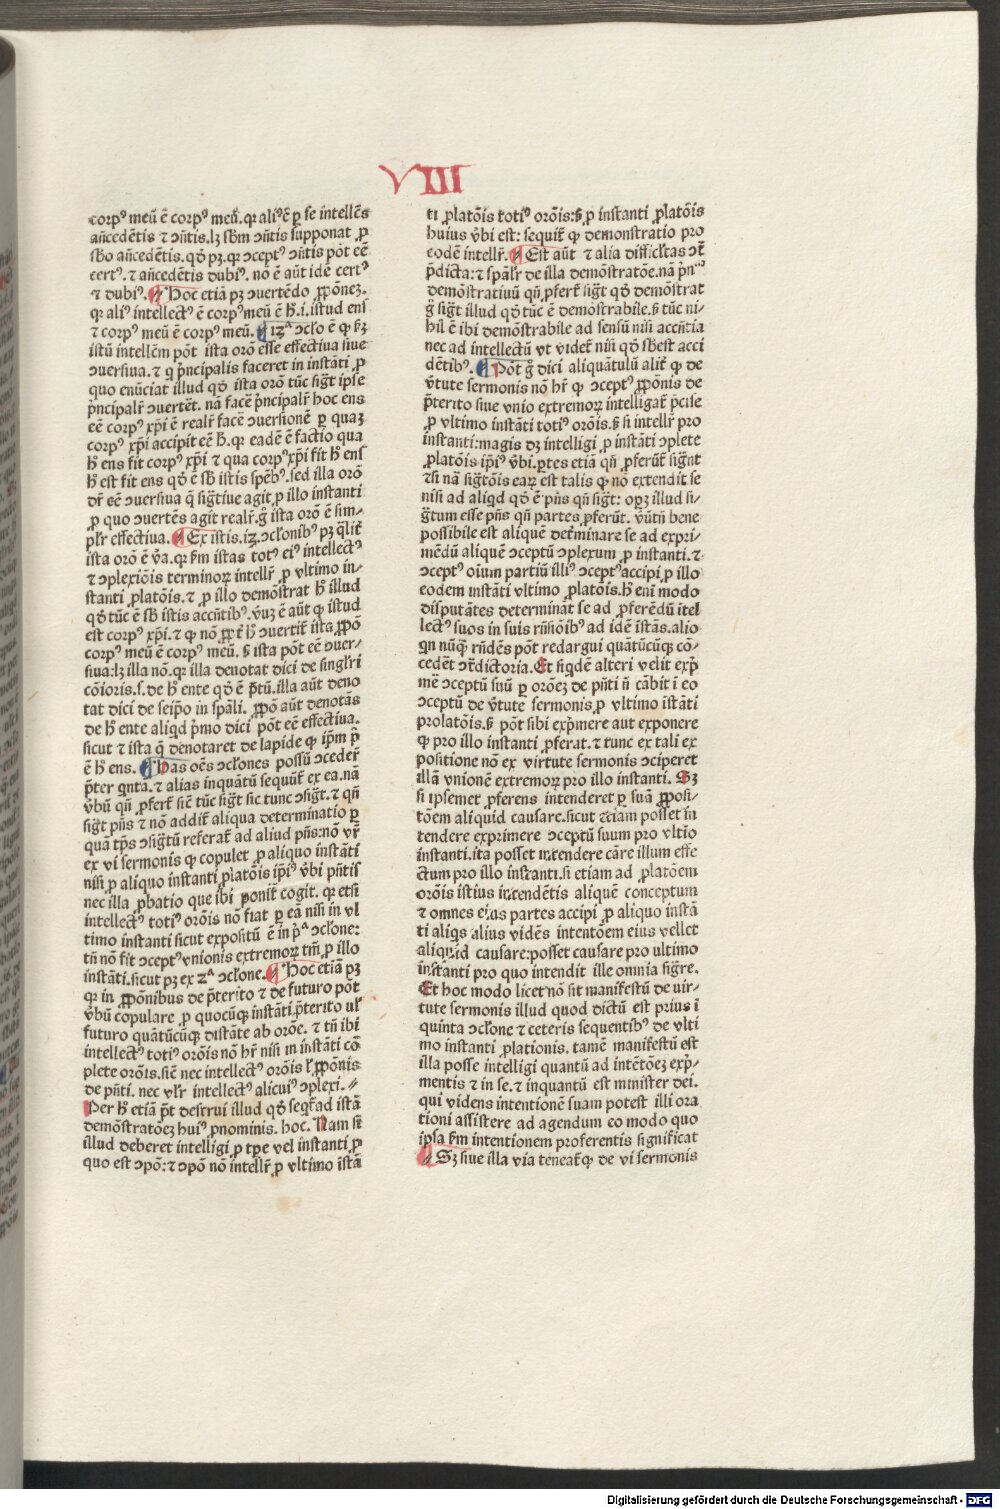 VIII
corpꝰ meū ē corpꝰ meū. qꝛ aliꝰ ē ꝑ se intellēs
añcedētis ⁊ ↄñtis. lꝫ ſbm ↄñtis supponat ꝓ
ſbo añcedētis. qď pꝫ. qꝛ ↄceptꝰ ↄñtis pōt eē
certꝰ. ⁊ añcedētis dubiꝰ. nō ē aūt idē certꝰ
⁊ dubiꝰ. Hoc etiā pꝫ ↄuertēdo ꝓpōneꝫ.
qꝛ aliꝰ intellectꝰ ē corpꝰ meū ē h̄. i. istud ens
⁊ corpꝰ meū ē corpꝰ meū. 12ᵃ ↄclo ē ꝙ ẜꝫ
istū intellēm pōt ista orō esse effectiua siue
ↄuersiua. ⁊ q̄ p̄ncipalis faceret in instāti ꝓ
quo enūciat illud qď ista orō tūc sigt̄ ipse
p̄ncipalr̄ ↄuertēt. nā facē p̄ncipalr̄ hoc ens
eē corpꝰ xp̄i ē realr̄ facē ↄuersionē ꝑ quaꝫ
corpꝰ xp̄i accipit eē h̄. qꝛ eadē ē factio qua
h̄ ens fit corpꝰ xp̄i ⁊ qua corpꝰ xp̄i fit h̄ ens
h̄ est fit ens qď ē sb̄ istis spēbꝰ. sed illa orō
dr̄ eē ↄuersiua q̄ sigt̄iue agit ꝓ illo instanti
ꝓ quo ↄuertēs agit realr̄. g̊ ista orō ē sim-
plr̄ effectiua. Ex istis. 12. ↄclonibꝰ pꝫ q̄lit̄
ista orō ē v̄a. qꝛ ẜm istas totꝰ eiꝰ intellectꝰ
⁊ ↄplexiōis terminoꝝ intellr̄ ꝓ vltimo in-
stanti ꝓlatōis. ⁊ ꝓ illo demōstrat h̄ illud
qď tūc ē sb̄ istis accn̄tibꝰ. v̄uꝫ ē aūt ꝙ istud
est corpꝰ xp̄i. ⁊ ꝙ nō ꝓpt̄ h̄ ↄuertit̄ ista ꝓpō
corpꝰ meū ē corpꝰ meū. ẜ ista pōt eē ↄuer-
siua: lꝫ illa nō. qꝛ illa denotat dici de singl̄ri
cōioris. s. de h̄ ente qď ē p̄tū. illa aūt deno
tat dici de seip̄o in spāli. ꝓpō aūt denotās
de h̄ ente aliqd p̄mo dici pōt eē effectiua.
sicut ⁊ ista q̄ denotaret de lapide ꝙ ip̄m p̄
ē h̄ ens. Has oēs ↄclones possū ↄceder̄
p̄ter qnta. ⁊ alias inquātū sequūt̄ ex ea. nā
v̄bū qn̄ ꝓfert̄ siē tūc sigt̄ sic tunc ↄsigt̄. ⁊ qn̄
sigt̄ pn̄s ⁊ nō addit̄ aliqua determinatio ꝑ
quā tp̄s ↄsigtū referat̄ ad aliud pn̄s: nō vr̄
ex vi sermonis ꝙ copulet ꝓ aliquo instāti
nisi ꝓ aliquo instanti ꝓlatōis ip̄iꝰ v̄bi pn̄tis
nec illa ꝓbatio que ibi ponit̄ cogit. qꝛ etsi
intellectꝰ totiꝰ orōis nō fiat ꝑ eā nisi in vl
timo instanti sicut expositū ē in p̄ᵃ ↄclone:
tn̄ nō fit ↄceptꝰ vnionis extremoꝝ tm̄ ꝓ illo
instāti. sicut pꝫ ex 2ᵃ ↄclone. Hoc etiā pꝫ
qꝛ in ꝓpōnibus de p̄terito ⁊ de futuro pōt
v̄bū copulare ꝓ quocūqꝫ instāti p̄terito uł
futuro quātūcūqꝫ distāte ab orōe. ⁊ tn̄ ibi
intellectꝰ totiꝰ orōis nō hr̄ nisi in instāti cō
plete orōis. siē nec intellectꝰ orōis l̄ ꝓpōnis
de pn̄ti. nec vlr̄ intellectꝰ alicuiꝰ ↄplexi.
Per h̄ etiā p̄t destrui illud qď seqr̄ ad istā
demōstratōeꝫ huiꝰ pnominis. hoc. Nam si
illud deberet intelligi ꝓ tp̄e vel instanti ꝓ
quo est ↄpō: ⁊ ↄpō nō intellr̄ ꝓ vltimo istā
ti ꝓlatōis totiꝰ orōis: ẜ ꝓ instanti ꝓlatōis
huius v̄bi est: sequit̄ ꝙ demonstratio pro
eodē intellr̄. Est aūt ⁊ alia difficl̄tas ↄt̄
p̄dicta: ⁊ spāłr de illa demōstratōe. nā p̄n
demōstratiuū qn̄ ꝓfert̄ sigt̄ qď demōstrat
g̊ sigt̄ illud qď tūc ē demōstrabile. ẜ tūc ni-
hil ē ibi demōstrabile ad sensū nisi accn̄tia
nec ad intellectū vt videt̄ nisi qď sb̄est acci
dētibꝰ. Pōt g̊ dici aliquātulū alit̄ ꝙ de
v̄tute sermonis nō hr̄ ꝙ ↄceptꝰ ꝓpōnis de
p̄terito siue vnio extremoꝝ intelligat̄ p̄cise
ꝓ vltimo instāti totiꝰ orōis. ẜ si intellr̄ pro
instanti: magis dꝫ intelligi ꝓ instāti ↄplete
ꝓlatōis ip̄iꝰ v̄bi. ꝑtes etiā qn̄ ꝓferūt̄ signt̄
⁊ si nā sigt̄ōis eaꝝ est talis ꝙ nō extendit se
nisi ad aliqd qď ē pn̄s qn̄ sigt̄: opꝫ illud si-
gtum esse pn̄s qn̄ partes ꝓferūt̄. v̄ūtn̄ bene
possibile est aliquē det̄minare se ad expri-
mēdū aliquē ↄceptū ↄplexum ꝓ instanti. ⁊
ↄceptꝰ oīum partiū illiꝰ ↄceptꝰ accipi ꝓ illo
eodem instāti vltimo ꝓlatōis. h̄ eni modo
disputātes determināt se ad ꝓferēdū itel
lectꝰ suos in suis rn̄siōibꝰ ad idē īstās. alio
qn nūqꝫ rn̄dēs pōt redargui quātūcūqꝫ cō-
cedēt ↄt̄dictoria. Et siqdē alteri velit exp̄
mē ↄceptū suū ꝑ orōeꝫ de pn̄ti n̄ cābit i eo
ↄceptū de v̄tute sermonis ꝓ vltimo īstāti
prolatōis. ẜ pōt sibi exp̄mere aut exponere
ꝙ pro illo instanti ꝓferat. ⁊ tunc ex tali ex
positione nō ex virtute sermonis ↄciperet
illā vnionē extremoꝝ pro illo instanti. Sꝫ
si ipsemet ꝓferens intenderet ꝑ suā ꝓposi-
tōem aliquid causare. sicut etiam posset in
tendere exprimere ↄceptū suum pro vltio
instanti. ita posset intendere cāre illum effe
ctum pro illo instanti. si etiam ad ꝓlatōem
orōis istius intendētis aliquē conceptum
⁊ omnes eius partes accipi ꝓ aliquo instā
ti aliqs alius vidēs intentōem eius vellet
aliquid causare: posset causare pro ultimo
instanti pro quo intendit ille omnia sigre.
Et hoc modo licet nō sit manifestū de vir-
tute sermonis illud quod dictū est prius i
quinta ↄclone ⁊ ceteris sequentibꝰ de vlti
mo instanti ꝓlationis. tamē manifestū est
illa posse intelligi quantū ad intētōeꝫ exp̄-
mentis ⁊ in se. ⁊ inquantū est minister dei.
qui videns intentionē suam potest illi ora
tioni assistere ad agendum eo modo quo
ipsa ẜm intentionem proferentis significat
Sꝫ siue illa via teneat̄ ꝙ de vi sermonis
Digitalisierung gefördert durch die Deutsche Forschungsgemeinschaft - DFG